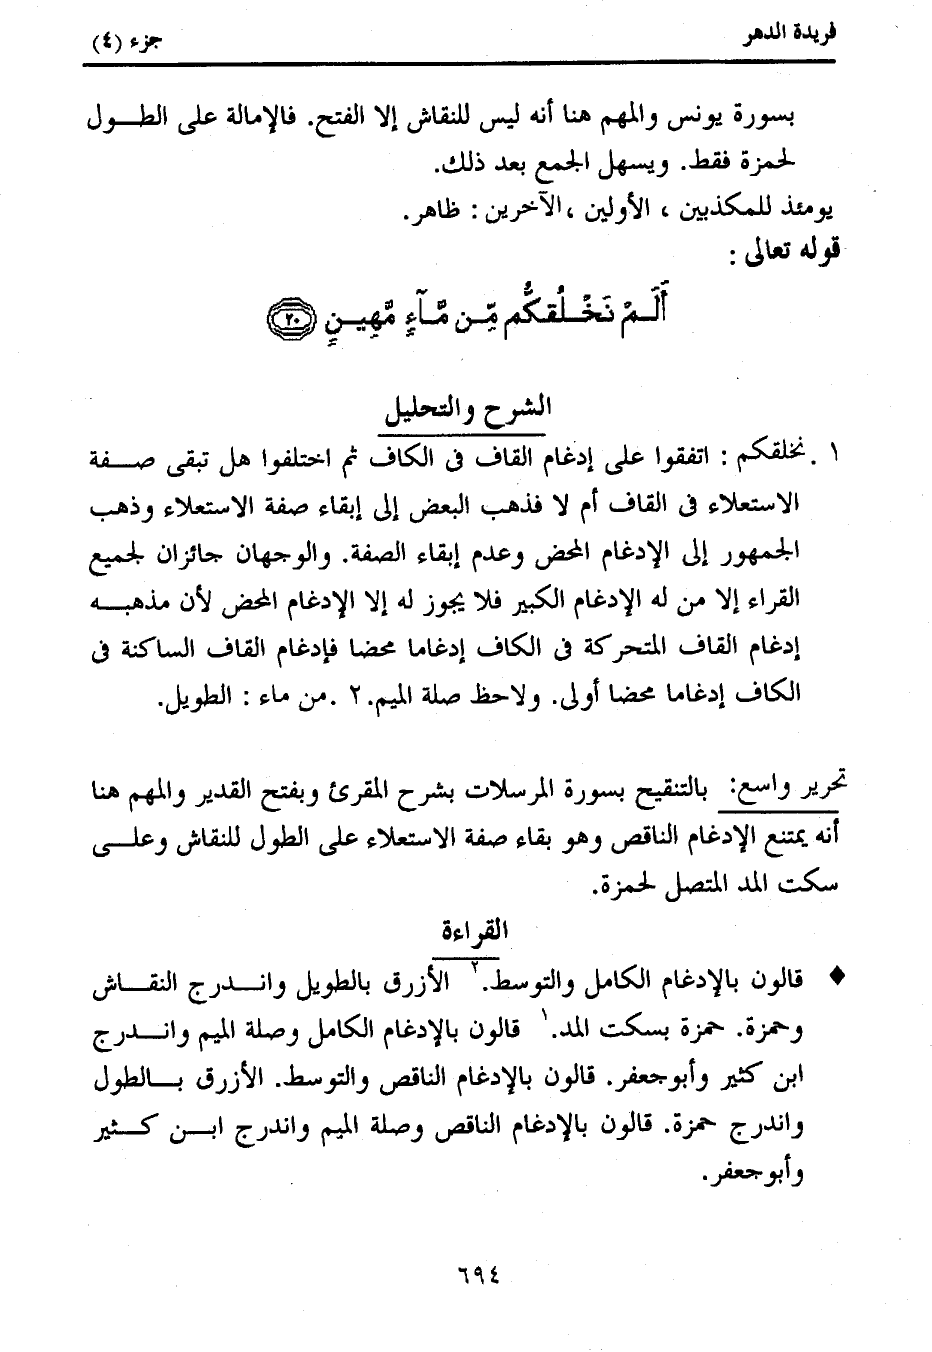 فريدة الدهر
جزء (٤)
بسورة يونس والمهم هنا أنه ليس للنقاش إلا الفتح. فالإمالة على الطول
لحمزة فقط. ويسهل الجمع بعد ذلك.
يومئذ للمكذبين ، الأولين ،الآخرين : ظاهر.
قوله تعالى :
أَلَمْ نَخْلُقكُّم مِّن مَّآءٍ مَّهِينٍ ٢٠
الشرح والتحليل
١ .نخلقكم : اتفقوا على إدغام القاف فى الكاف ثم اختلفوا هل تبقى صفة
الاستعلاء فى القاف أم لا فذهب البعض إلى إبقاء صفة الاستعلاء وذهب
الجمهور إلى الإدغام المحض وعدم إبقاء الصفة. والوجهان جائزان لجميع
القراء إلا من له الإدغام الكبير فلا يجوز له إلا الإدغام المحض لأن مذهبه
إدغام القاف المتحركة فى الكاف إدغاما محضا فإدغام القاف الساكنة فى
الكاف إدغاما محضا أولى. ولاحظ صلة الميم.٢ .من ماء : الطويل.
تحرير واسع: بالتنقيح بسورة المرسلات بشرح المقرئ وبفتح القدير والمهم هنا
أنه يمتنع الإدغام الناقص وهو بقاء صفة الاستعلاء على الطول للنقاش وعلى
سكت المد المتصل لحمزة.
القراءة
♦ قالون بالإدغام الكامل والتوسط.٢ الأزرق بالطويل واندرج النقاش
وحمزة. حمزة بسكت المد.١ قالون بالإدغام الكامل وصلة الميم واندرج
ابن كثير وأبوجعفر. قالون بالإدغام الناقص والتوسط. الأزرق بالطول
واندرج حمزة. قالون بالإدغام الناقص وصلة الميم واندرج ابن كثير
وأبوجعفر.
٦٩٤